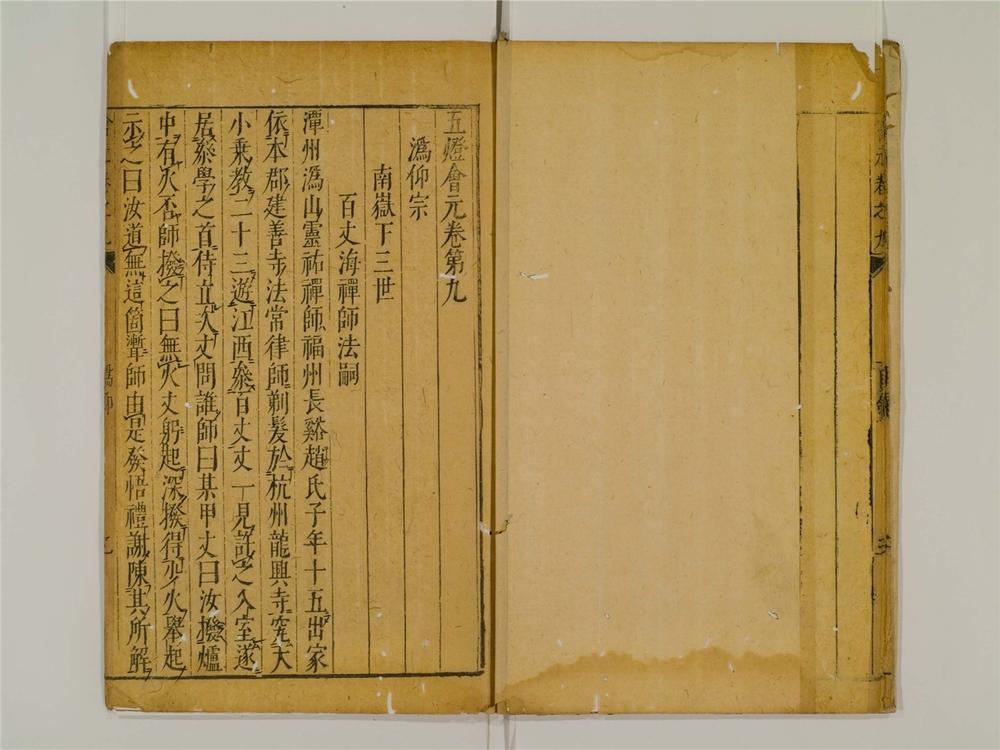 五燈會元卷第九
溈仰宗
南嶽下三世
百丈海禪師法嗣
潭州溈山靈祐禪師福州長谿趙氏子年十五出家
依本郡建善寺法常律師剃髮於杭州龍興寺究大
小乘教二十三遊江西叅百丈丈一見許之入室遂
居叅學之首侍立次丈問誰師曰某甲丈曰汝撥爐
中有火否師撥之曰無火丈躬起深撥得少火舉起
示之曰汝道無這箇聻師由是發悟禮謝陳其所解